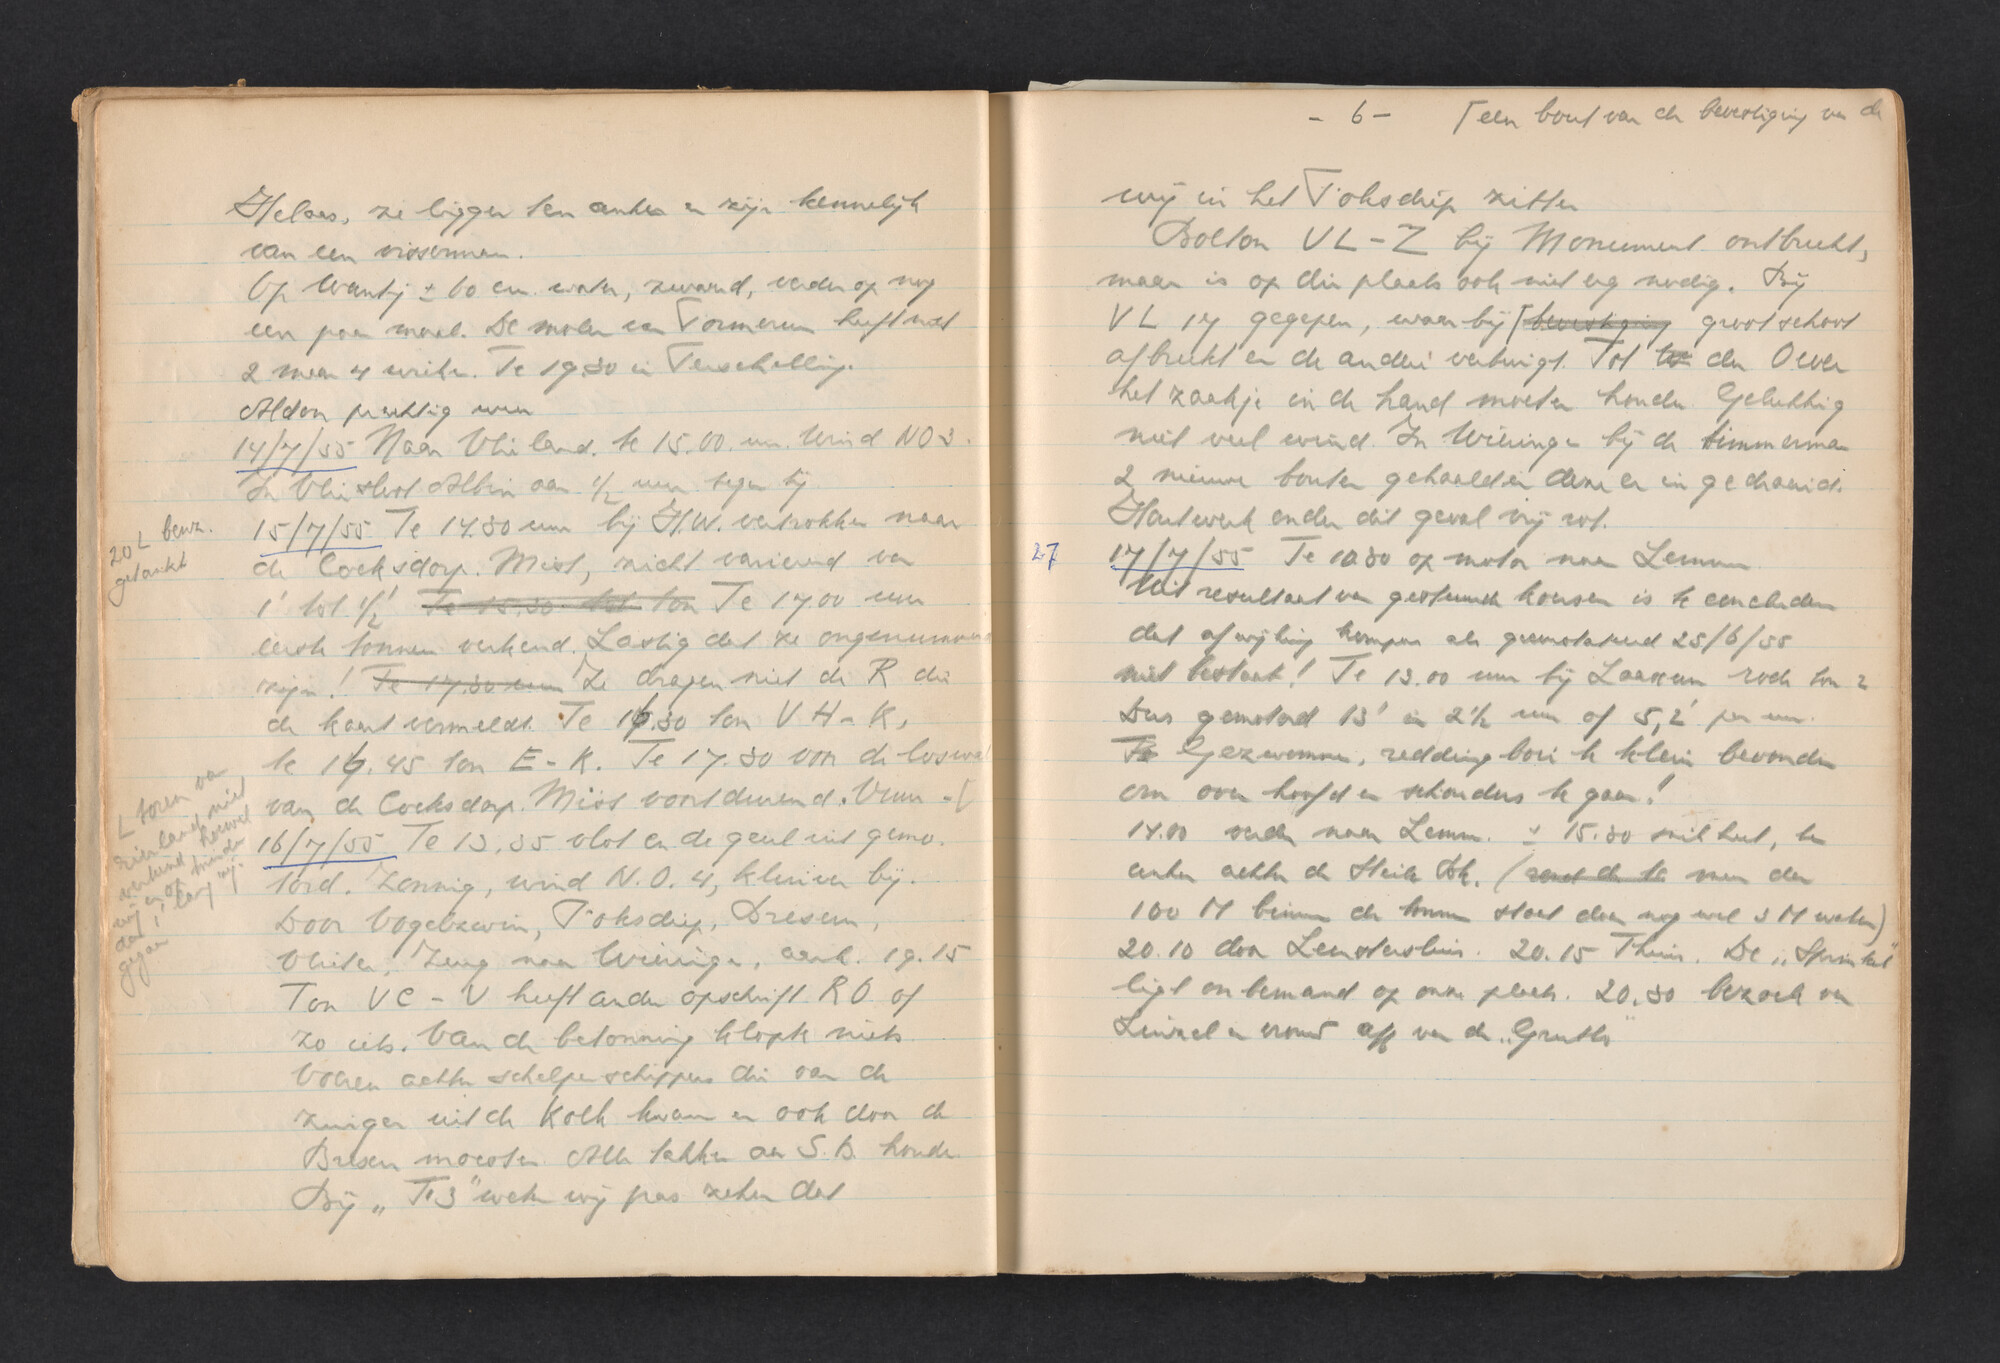 Helaas, ze liggen ten anker en zijn kennelijk
van een visserman.
Op Wantij ± 60 cm water, zwaard, verder op nog
een paar maal. De molen van Formerum heeft met
2 maar 4 wieken. Te 19.30 in Terschelling.
Aldoor prachtig weer
14/7/55 Naar Vlieland. te 15.00 uur. Wind NO 3.
In Vliesloot Albin aan 1/2 uur tegen tij
20 L benz.
getankt
15/7/55 Te 14.30 uur bij H.W. vertrokken naar
de Cocksdorp. Mist, zicht varierend van
1' tot 1/2' Te 15.30 tot ton Te 17 00 uur
eerste tonnen verkend. Lastig dat ze ongenummerd
zijn! Te 17.30 uur Ze dragen niet de R die
de kaart vermeldt. Te 16.30 ton VH-K,
te 16.45 ton E-K. Te 17.30 voor de loswal
van de Cocksdorp. Mist voortdurend. Vuur-[
[ toren van
Eierland niet
verkend hoewel
wij er, op minder
dan 1' langs zijn
gegaan
16/7/55 Te 13.35 vlot en de geul uit gemo-
tord. Zonnig, wind N.O. 4, kleiner bij.
Door Vogelzwin, Foksdiep, Bresem,
Vlieter, Zeug naar Wieringen, aank. 19.15
Ton VC-V heeft ander opschrift RO of
zo iets. Van de betonning klopte niets
Voeren achter schelpenschippers die van de
zuiger uit de Kolk kwamen ook door de
Bresem moesten. Alle takken aan S.B. houden
Bij „T 3" weten wij pas zeker dat
- 6 -
[een bout van de bevestiging van de
wij in het Foksdiep zitten
Bolton VL-Z bij Monument ontbreekt,
maar is op die plaats ook niet erg nodig. Bij
VL 14 gegepen, waarbij [bevestiging grootschoot
afbreekt en de andere verbuigt. Tot den Oever
het zaakje in de hand moeten houden. Gelukkig
niet veel wind. In Wieringen bij de timmerman
2 nieuwe bouten gehaald en deze er in gedraaid.
Houtwerk onder dit geval vrij rot.
27
17/7/55 Te 10.30 op motor naar Lemmer
Uit resultaat van gestuurde koersen is te concluderen
dat afwijking kompas als geconstateerd 25/6/55
niet bestaat! Te 13.00 uur bij Laaxum rode ton 2
Dus gemotord 13' in 2 1/2 uur of 5,2' per uur.
Te Gezwommen, reddingboei te klein bevonden
om over hoofd en schouders te gaan!
14.00 verder naar Lemm. ± 15.30 ten
anker achter de Steile Bk. (rond de te men der
100 M binnen de tonnen staat daar nog wel 3 M water)
20.10 door Lemstersluis. 20.15 Thuis. De „Sprinkel"
ligt onbemand op onze plaats. 20.30 bezoek van
en vrouw van de „Grutto"